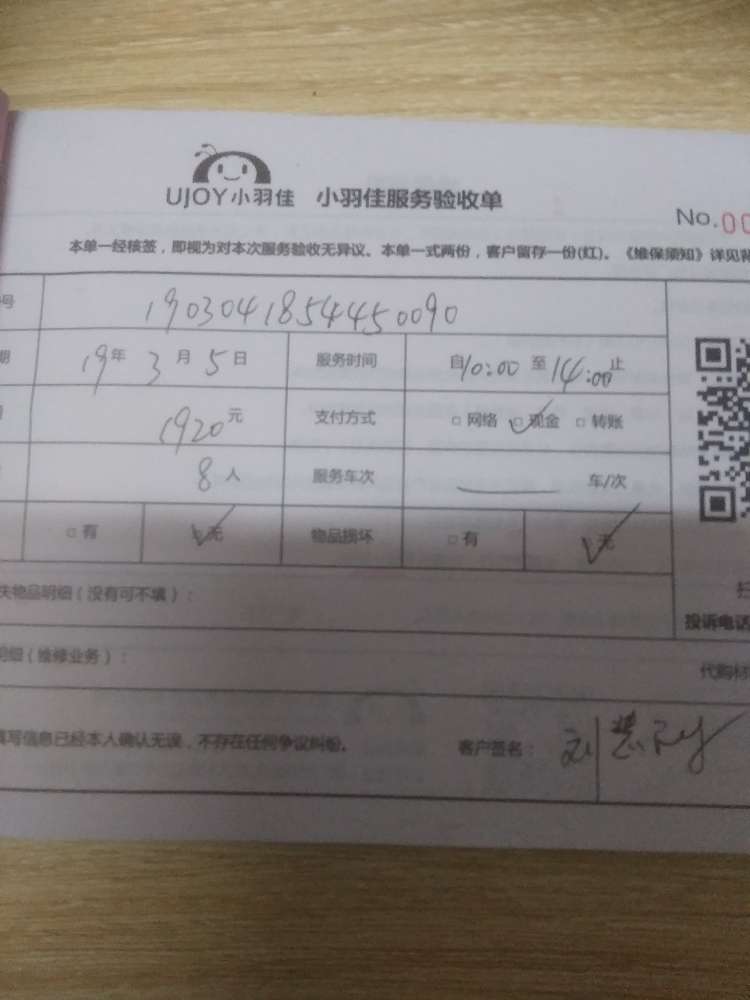 UJOY小羽佳 小羽佳服务验收单
No.00
本单一经核签，即视为对本次服务验收无异议。本单一式两份，客户留存一份(红)。《维保须知》详见背
号 1903041854450090
期 19年3月5日 服务时间 自10:00至14:00止
1920元 支付方式 □网络 □现金 □转账
8人 服务车次 车/次
□有 □无 物品损坏 □有 □无
失物品明细（没有可不填）：
投诉电话
明细（维修业务）：
代购材
填写信息已经本人确认无误，不存在任何争议纠纷。 客户签名：刘